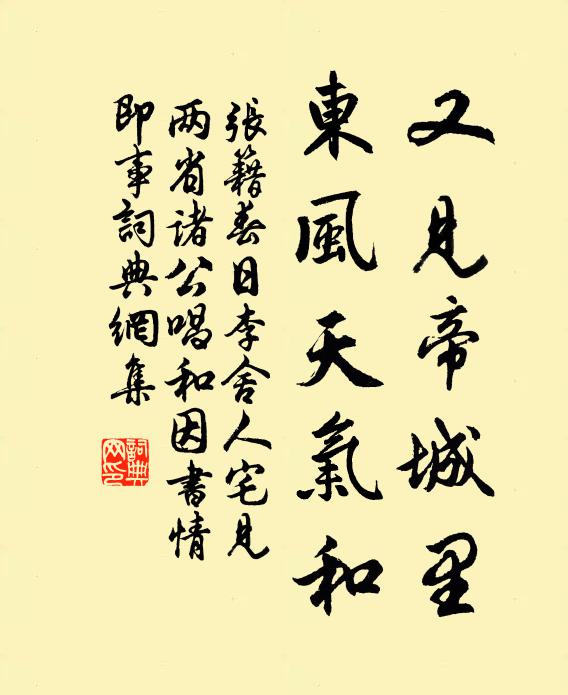 又見帝城里
東風天氣和
張籍春日李舍人宅見
两省諸公唱和因書情
即事詞典網集
詞典
网印